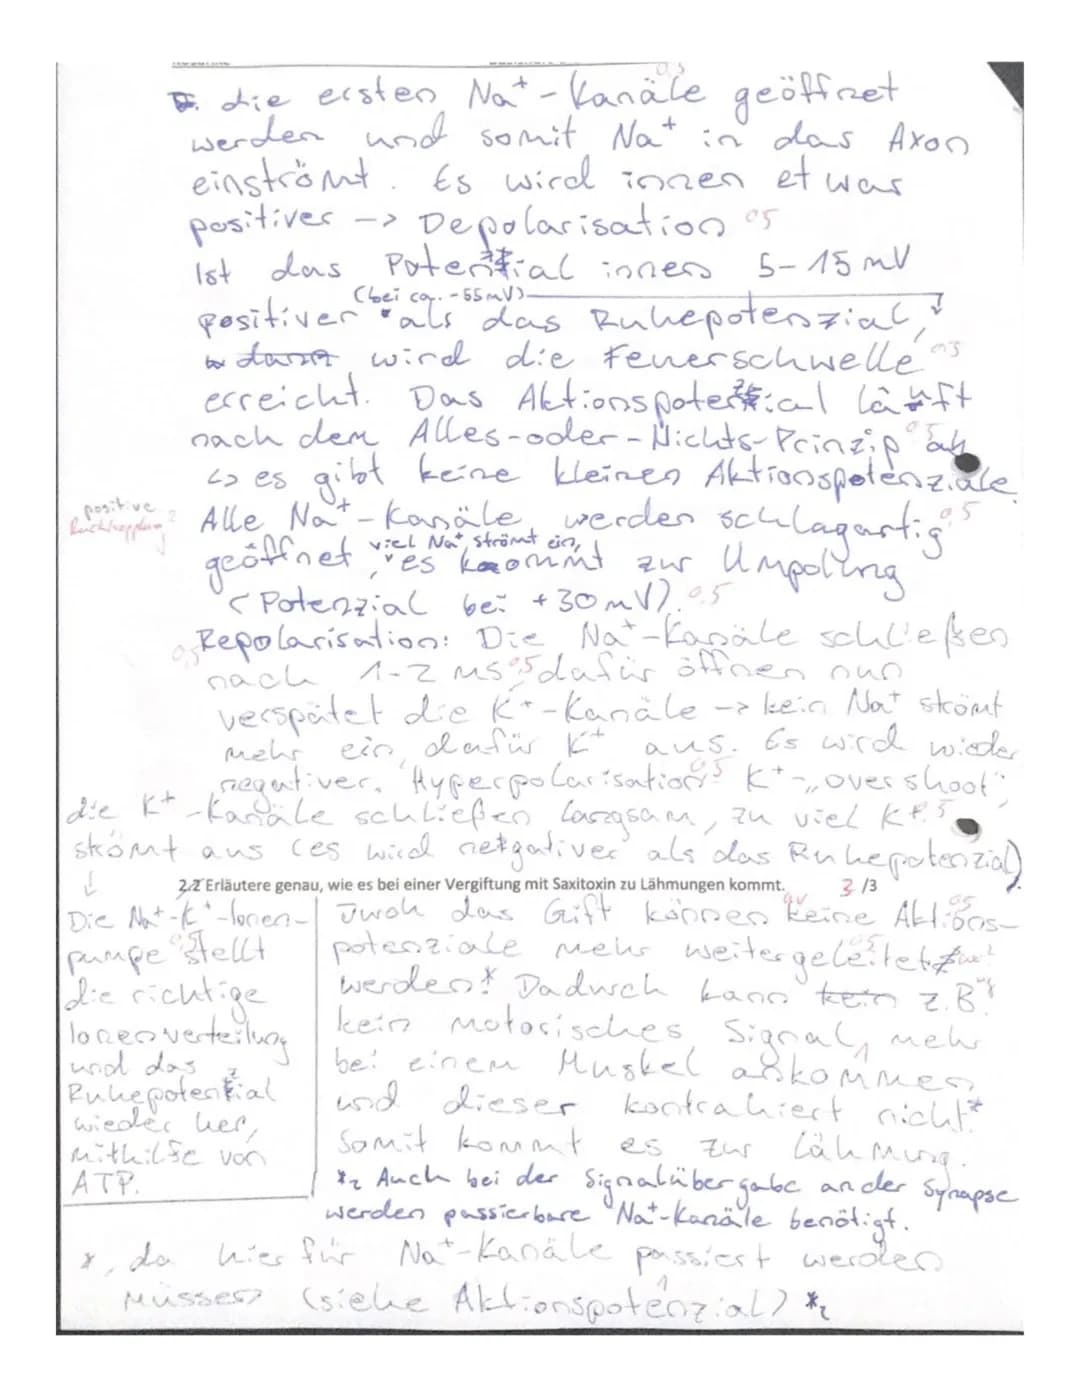 die ersten Na⁺-Kanäle geöffnet
0,5
werden und somit Na⁺ in das Axon
einströmt. Es wird innen etwas
positiver -> Depolarisation 0,5
Ist das Potenzial innen 5-15 mV
(bei ca. -55mV)
positiver als das Ruhepotenzial,
wird die Feuerschwelle 0,5
erreicht. Das Aktionspotenzial läuft
nach dem Alles-oder-Nichts-Prinzip ab
0,5
↳ es gibt keine kleinen Aktionspotenziale.
positive
Rückkopplung?
Alle Na⁺-Kanäle werden schlagartig 0,5
viel Na⁺ strömt ein,
geöffnet, es kommt zur Umpolung
(Potenzial bei +30mV). 0,5
0,5 Repolarisation: Die Na⁺-Kanäle schließen
nach 1-2 ms 0,5 dafür öffnen nun
verspätet die K⁺-Kanäle -> kein Na⁺ strömt
mehr ein, dafür K⁺ aus. Es wird wieder
negativer. Hyperpolarisation: 0,5 K⁺-„overshoot":
die K⁺-Kanäle schließen langsam, zu viel K⁺ 0,5
stömt aus (es wird negativer als das Ruhepotenzial).
↓
Die Na⁺-K⁺-Ionen-
pumpe stellt
0,5
die richtige
Ionenverteilung
und das
Ruhepotenzial
wieder her,
mithilfe von
ATP.
2.2 Erläutere genau, wie es bei einer Vergiftung mit Saxitoxin zu Lähmungen kommt. 3 /3
Durch das Gift können keine Aktions-
0,5
potenziale mehr weitergeleitet
0,5
werden.* Dadurch kann kein z.B.
kein motorisches Signal mehr
bei einem Muskel ankommen
1
und dieser kontrahiert nicht.*
Somit kommt es zur Lähmung.
*₂ Auch bei der Signalübergabe an der Synapse
werden passierbare Na⁺-Kanäle benötigt.
*, da hierfür Na⁺-Kanäle passiert werden
müssen (siehe Aktionspotenzial) *₂
1